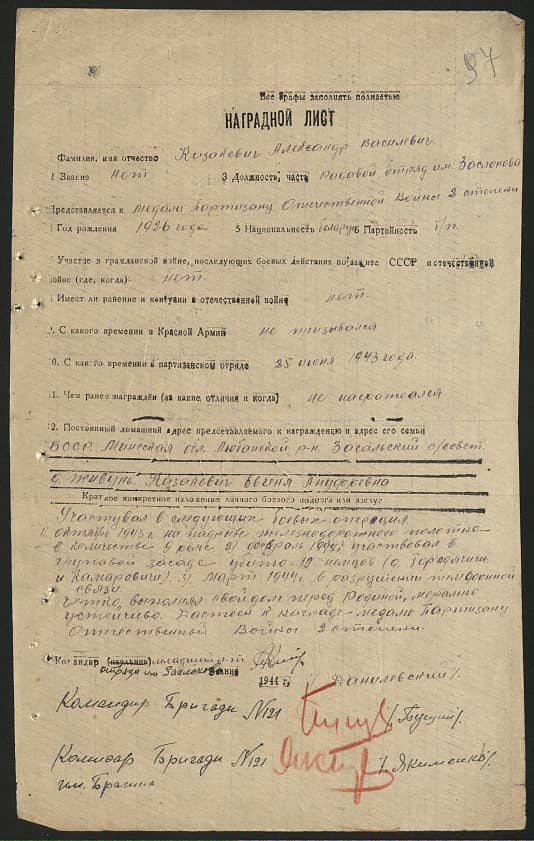 97
Все графы заполнять полностью
НАГРАДНОЙ ЛИСТ
Фамилия, имя отчество Казакевич Александр Василевич
2 Звание нет 3 Должность, часть радавой отряд им. Заслонова
Представляется к медали Партизану Отечественной Войны 2 степени
Год рождения 1926 года 5 Национальность белорус 6 Партийность б/п.
Участие в гражданской войне, последующих боевых действиях по защите СССР и отечественной
войне (где, когда) нет.
Имеет ли ранение и контузии в отечественной войне нет.
9. С какого времени в Красной Армии не призывался
10. С какого времени в партизанском отряде 25 июня 1943 года.
11. Чем ранее награждён (за какие отличия и когда) не награждался
12. Постоянный домашний адрес представляемого к награждению и адрес его семьи
БССР Минская обл. Любанский р-н. Загальский с/совет
д. Живунь Казакевич Евгения Ануфреевна
Краткое конкретное изложение личного боевого подвига или заслуг
Участвувал в следующих боевых операция
октябрь 1943 г на подриве железнодорожного полотна
в количестве 9 рельс 2) февраль 1944 г участвовал в
груповой засаде убито 12 немцов (д.
и Комаровичи). 3) март 1944 г. в разрушении телефонной
связи
Чётко выполнял свой долг перед Родиной, морально
устойчиво. Достоен к награде-медали Партизану
Отечественной Войны 2 степени.
Командир младший л-т
отряда им Заслонова Звание 1944 г. /Данилевский/
Командир Бригади №121 /Бущий/.
Комисар Бригади №121 /Якименко/.
им. Брагина